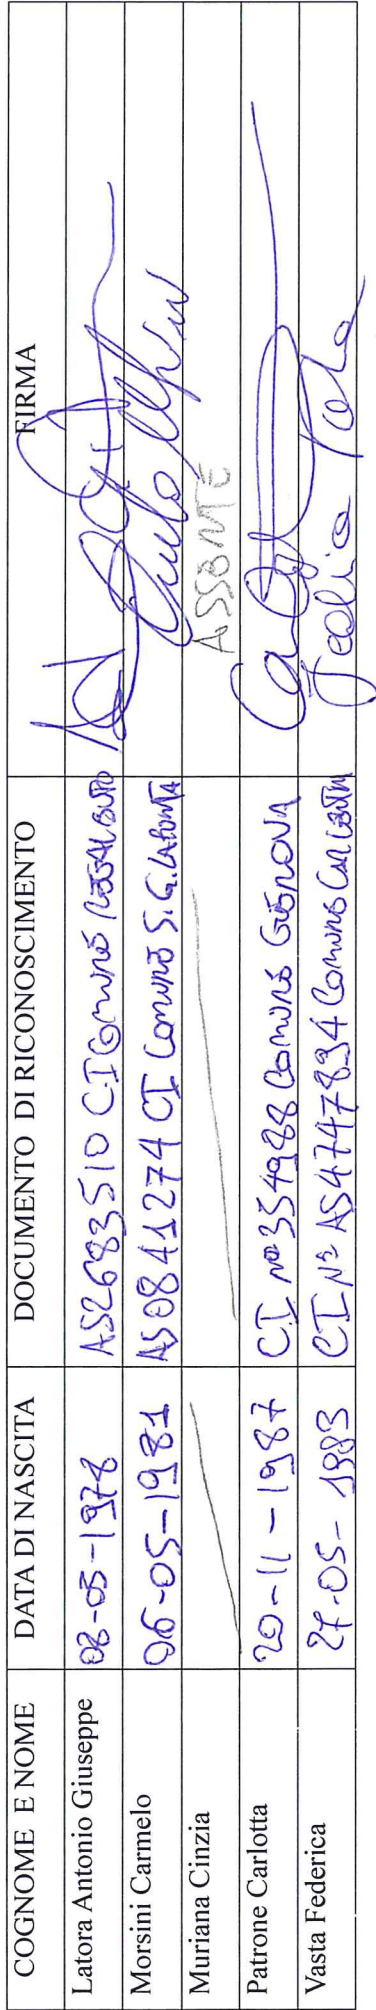 COGNOME E NOME DATA DI NASCITA DOCUMENTO DI RICONOSCIMENTO FIRMA
Latora Antonio Giuseppe 08-05-1978 AS2683510 C.I Comune
Morsini Carmelo 06-05-1981 AS0841274 CI Comune S.G. LA PUNTA
Muriana Cinzia ASSENTE
Patrone Carlotta 20-11-1987 C.I N° 354988 Comune GENOVA
Vasta Federica 27-05-1983 CI N° AS4747834 Comune CARLENTINI